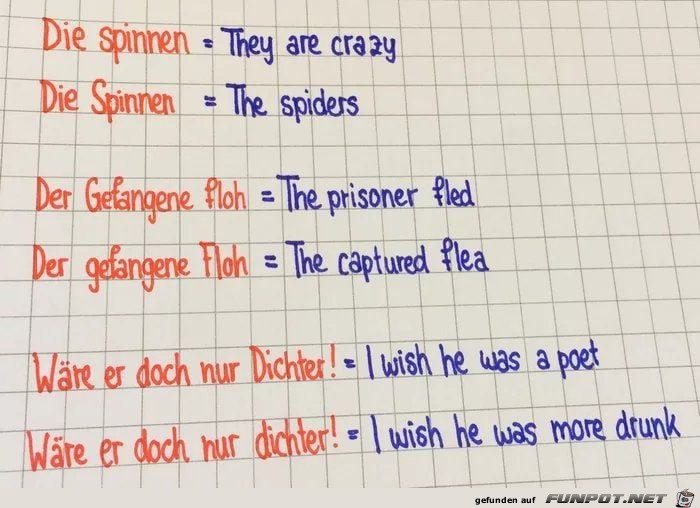 Die spinnen = They are crazy
Die Spinnen = The spiders
Der Gefangene floh = The prisoner fled
Der gefangene Floh = The captured flea
Wäre er doch nur Dichter! = I wish he was a poet
Wäre er doch nur dichter! = I wish he was more drunk
gefunden auf FUNPOT.NET